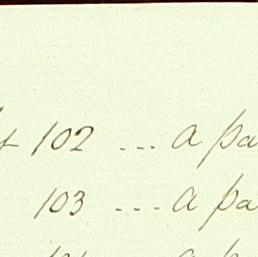 102 ... a pa
103 ... a pa